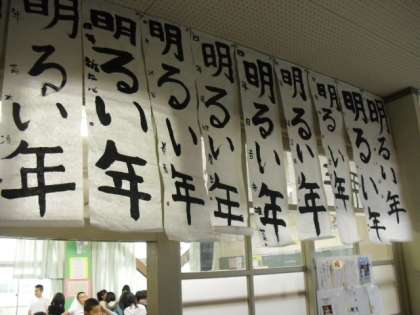 明るい年
明るい年
明るい年
明るい年
明るい年
明るい年
明るい年
明るい年
明るい年